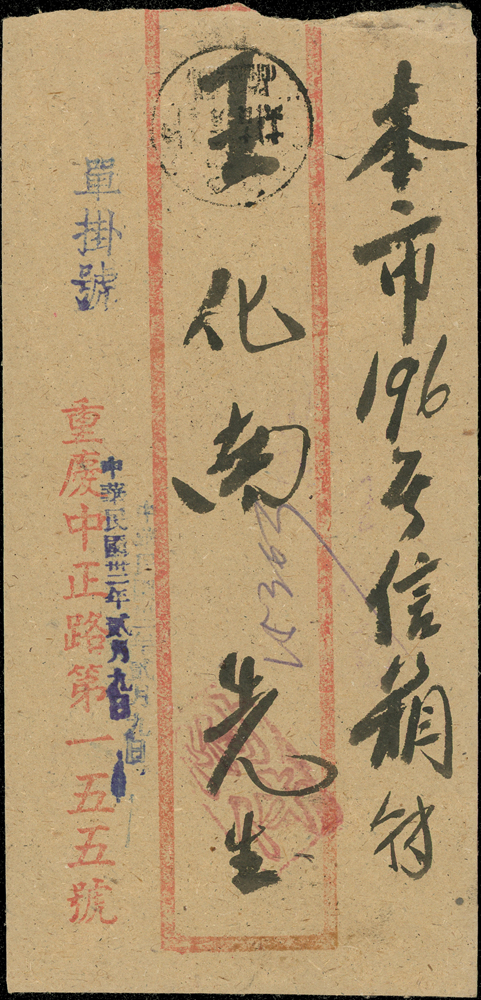 本市196号信箱付
王化南先生
15363
單掛號
中華民國卅二年貳月九日
重慶中正路第一五五號